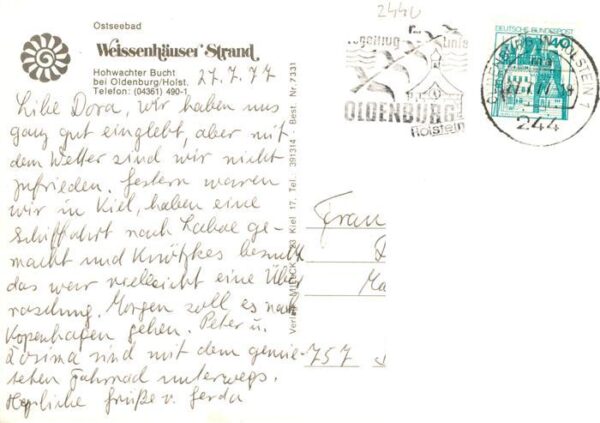 2440
Ostseebad
Weissenhäuser Strand
Hohwachter Bucht
bei Oldenburg/Holst.
Telefon: (04361) 490-1
27.7.77
Liebe Dora, wir haben uns
ganz gut eingelebt, aber mit
dem Wetter sind wir nicht
zufrieden. Gestern waren
wir in Kiel, haben eine
Schiffahrt nach Laboe ge-
macht und besucht
das war vielleicht eine Über
raschung. Morgen soll es nach
Kopenhagen gehen. Peter u.
sind mit dem gemie-
teten Fahrrad unterwegs.
Herzliche Grüße v. Gerda
Kiel 17, Tel.: 391314 · Best. Nr. 7331
Vogelfluglinie
OLDENBURG
Holstein
DEUTSCHE BUNDESPOST
40
HOLSTEIN 1
244
Frau
757